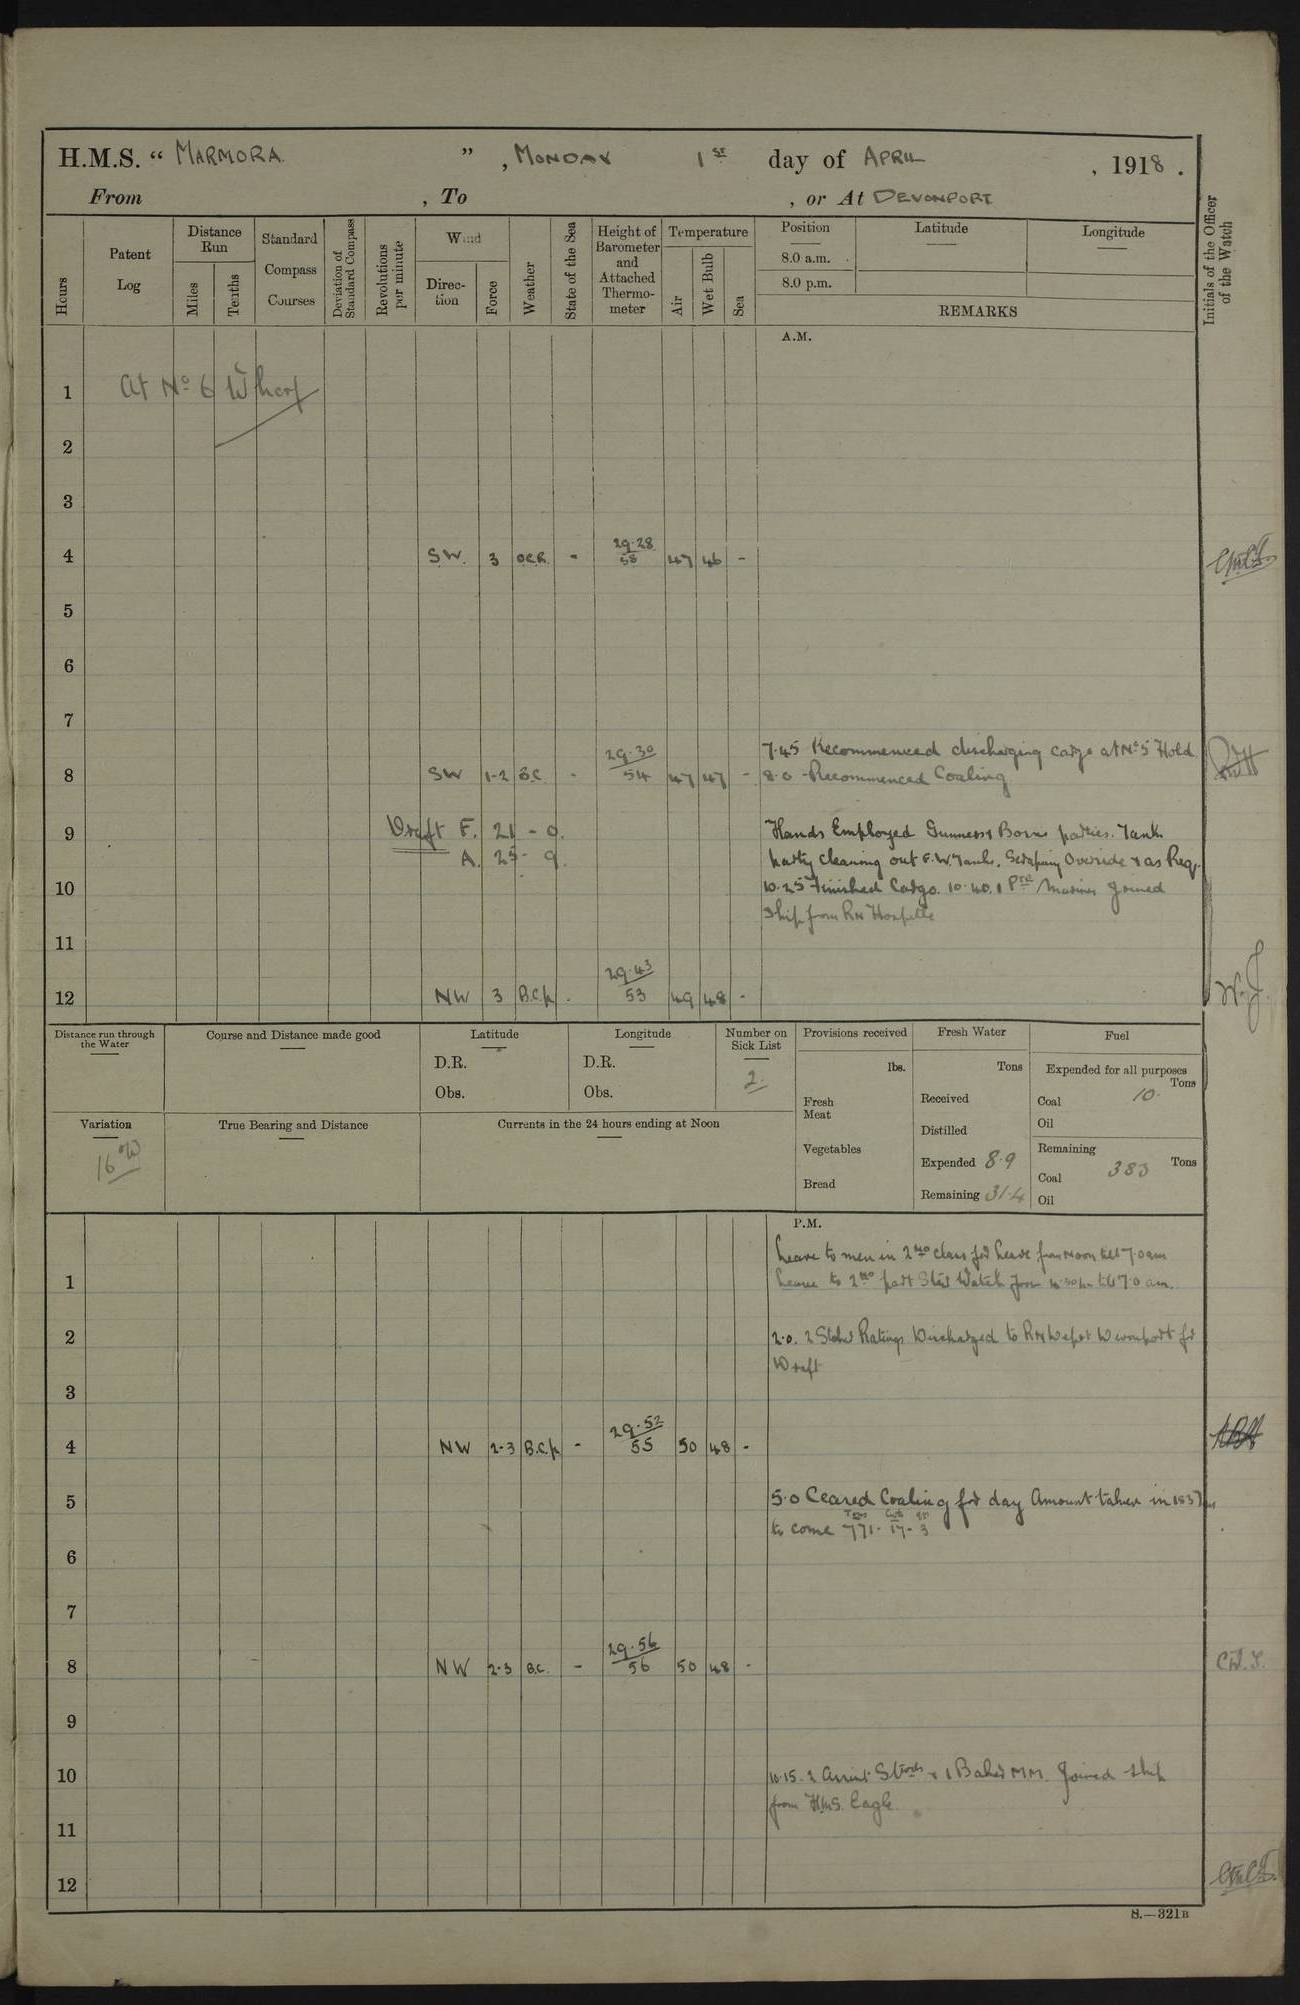 H.M.S. “ MARMORA ” , MONDAY 1st day of APRIL , 1918 .
From , To , or At DEVONPORT
Hours
Patent Log
Distance Run
Miles
Tenths
Standard Compass Courses
Deviation of Standard Compass
Revolutions per minute
Wind
Direc-tion
Force
Weather
State of the Sea
Height of Barometer and Attached Thermo-meter
Temperature
Air
Wet Bulb
Sea
Position
8.0 a.m.
8.0 p.m.
Latitude
Longitude
REMARKS
Initials of the Officer of the Watch
A.M.
1 At No 6 Wharf
2
3
4 SW. 3 OCR - 29.28 58 47 46 -
5
6
7
7.45 Recommenced discharging cargo at No 5 Hold
8 SW 1-2 BC - 29.30 54 47 47 - 8.0 Recommenced Coaling
9 Draft F. 21 - 0. Hands Employed parties. Tank
A. 25 - 9. party cleaning out F.W. Tanks. Scraping Overside & as Req.
10 10.25 Finished Cargo. 10.40. 1 Pte Marines joined
Ship from RN Hospital
11
12 NW 3 B.C.p - 29.43 53 49 48 - W.J.
Distance run through the Water
Course and Distance made good
Latitude
D.R.
Obs.
Longitude
D.R.
Obs.
Number on Sick List
2
Variation
16°W
True Bearing and Distance
Currents in the 24 hours ending at Noon
Provisions received
lbs.
Fresh Meat
Vegetables
Bread
Fresh Water
Tons
Received
Distilled
Expended 8.9
Remaining 31.4
Fuel
Expended for all purposes
Tons
Coal 10.
Oil
Remaining
Coal 383 Tons
Oil
P.M.
Leave to men in 2nd class for leave from Noon till 7.0 am
1 Leave to 2nd part Stbd Watch from 4.30 pm till 7.0 am.
2 2.0. 2 Stoker Ratings Discharged to RN Depot Devonport for
Draft
3
4 NW 2-3 B.C.p - 29.52 55 50 48 -
5 5.0 Ceased Coaling for day Amount taken in 183 Tons
to come Tons 771 - Cwts 17 - qrs 3
6
7
8 NW 2-3 B.C. - 29.56 56 50 48 -
9
10 10.15. 2 Assist Stwds & 1 Baker MM. Joined ship
from HMS. Eagle.
11
12
S.—321B